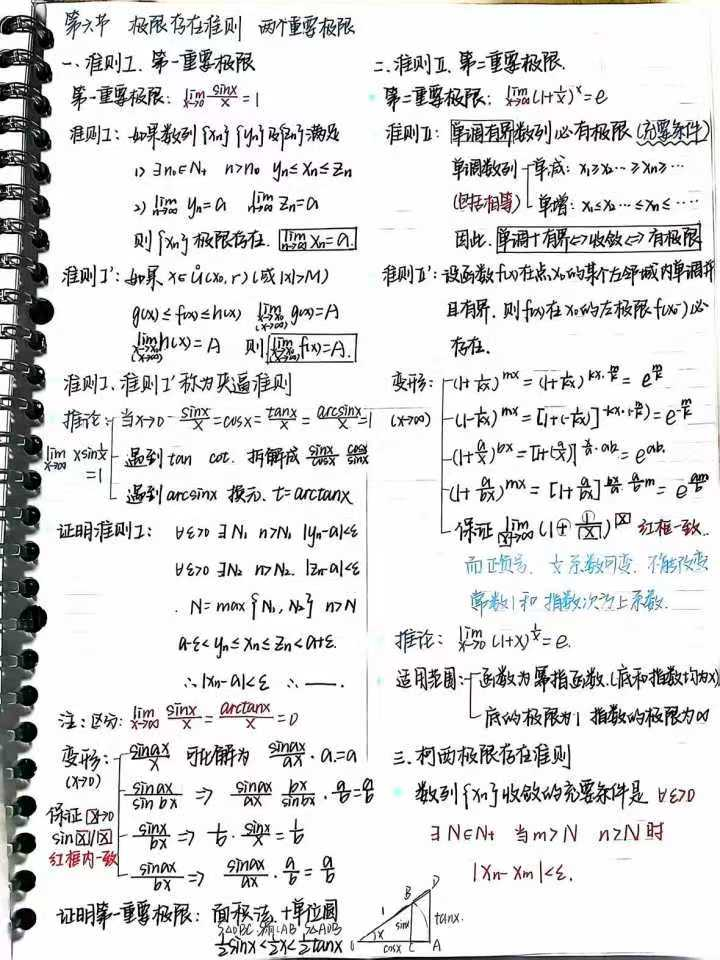 第六节 极限存在准则 两个重要极限
一、准则I、第一重要极限
第一重要极限: lim x→0 sinx/x = 1
准则I: 如果数列{xn} {yn}及{zn}满足
1) ∃n₀∈N₊ n>n₀ yn≤xn≤zn
2) lim n→∞ yn=a lim n→∞ zn=a
则{xn}极限存在. lim n→∞ xn=a.
准则I': 如果 x∈Ů(x₀,r) (或|x|>M)
g(x)≤f(x)≤h(x) lim x→x₀ (x→∞) g(x)=A
lim x→x₀ (x→∞) h(x)=A 则 lim x→x₀ (x→∞) f(x)=A.
准则I、准则I'称为夹逼准则
推论: 当x→0 sinx/x=cosx=tanx/x=arcsinx/x=1
lim x→∞ xsin1/x =1
遇到tan cot. 拆解成 sinx/cosx cosx/sinx
遇到arcsinx 换元. t=arctanx
证明准则I: ∀ε>0 ∃N₁ n>N₁ |yn-a|<ε
∀ε>0 ∃N₂ n>N₂. |zn-a|<ε
. N=max{N₁,N₂} n>N
a-ε<yn≤xn≤zn<a+ε.
∴|xn-a|<ε ∴ ——.
注: 区分: lim x→∞ sinx/x = arctanx/x = 0
变形: (x→0)
sinax/x 可化解为 sinax/ax · a = a
sinax/sinbx ⇒ sinax/ax bx/sinbx · a/b = a/b
sinx/bx ⇒ 1/b · sinx/x = 1/b
sinax/bx ⇒ sinax/ax · a/b = a/b
保证☒→0
sin☒/☒
红框内一致
证明第一重要极限: 面积法. +单位圆
S△OBC 扇OAB S△AOD
½sinx<½x<½tanx
O A B C D 1 x sinx cosx tanx.
二、准则II、第二重要极限.
第二重要极限: lim x→∞ (1+1/x)ˣ=e
准则II: 单调有界数列必有极限 (充要条件)
单调数列 单减: x₁≥x₂…≥xn≥…
(包括相等) 单增: x₁≤x₂…≤xn≤….
因此. 单调+有界⇔收敛⇔有极限
准则II': 设函数f(x)在点x₀的某个左邻域内单调并
且有界. 则f(x)在x₀的左极限f(x₀⁻)必
存在.
变形: (x→∞)
(1+1/kx)^mx = (1+1/kx)^kx·m/k = e^m/k
(1-1/kx)^mx = [1+(-1/kx)]^-kx·(-m/k) = e^-m/k
(1+a/x)^bx = [1+(a/x)]^x/a·ab = e^ab.
(1+a/bx)^mx = [1+a/bx]^bx/a·a/b·m = e^am/b
保证 lim ☒→∞ (1⊕1/☒)^☒ 红框一致.
而正负号、文系数可变. 不能改变
常数1和 指数次方上系数.
推论: lim x→0 (1+x)^1/x=e.
适用范围: 函数为幂指函数.(底和指数均为x)
底的极限为1 指数的极限为∞
三、柯西极限存在准则
数列{xn}收敛的充要条件是 ∀ε>0
∃N∈N₊ 当m>N n>N时
|xn-xm|<ε.